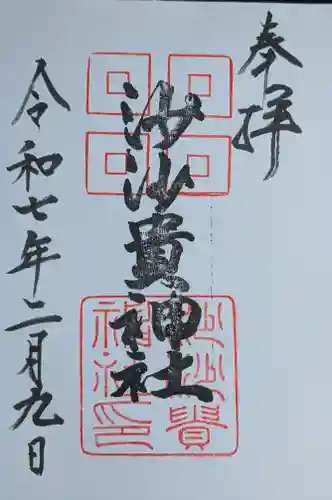 奉拝
沙沙貴神社
沙沙貴神社印
令和七年二月九日